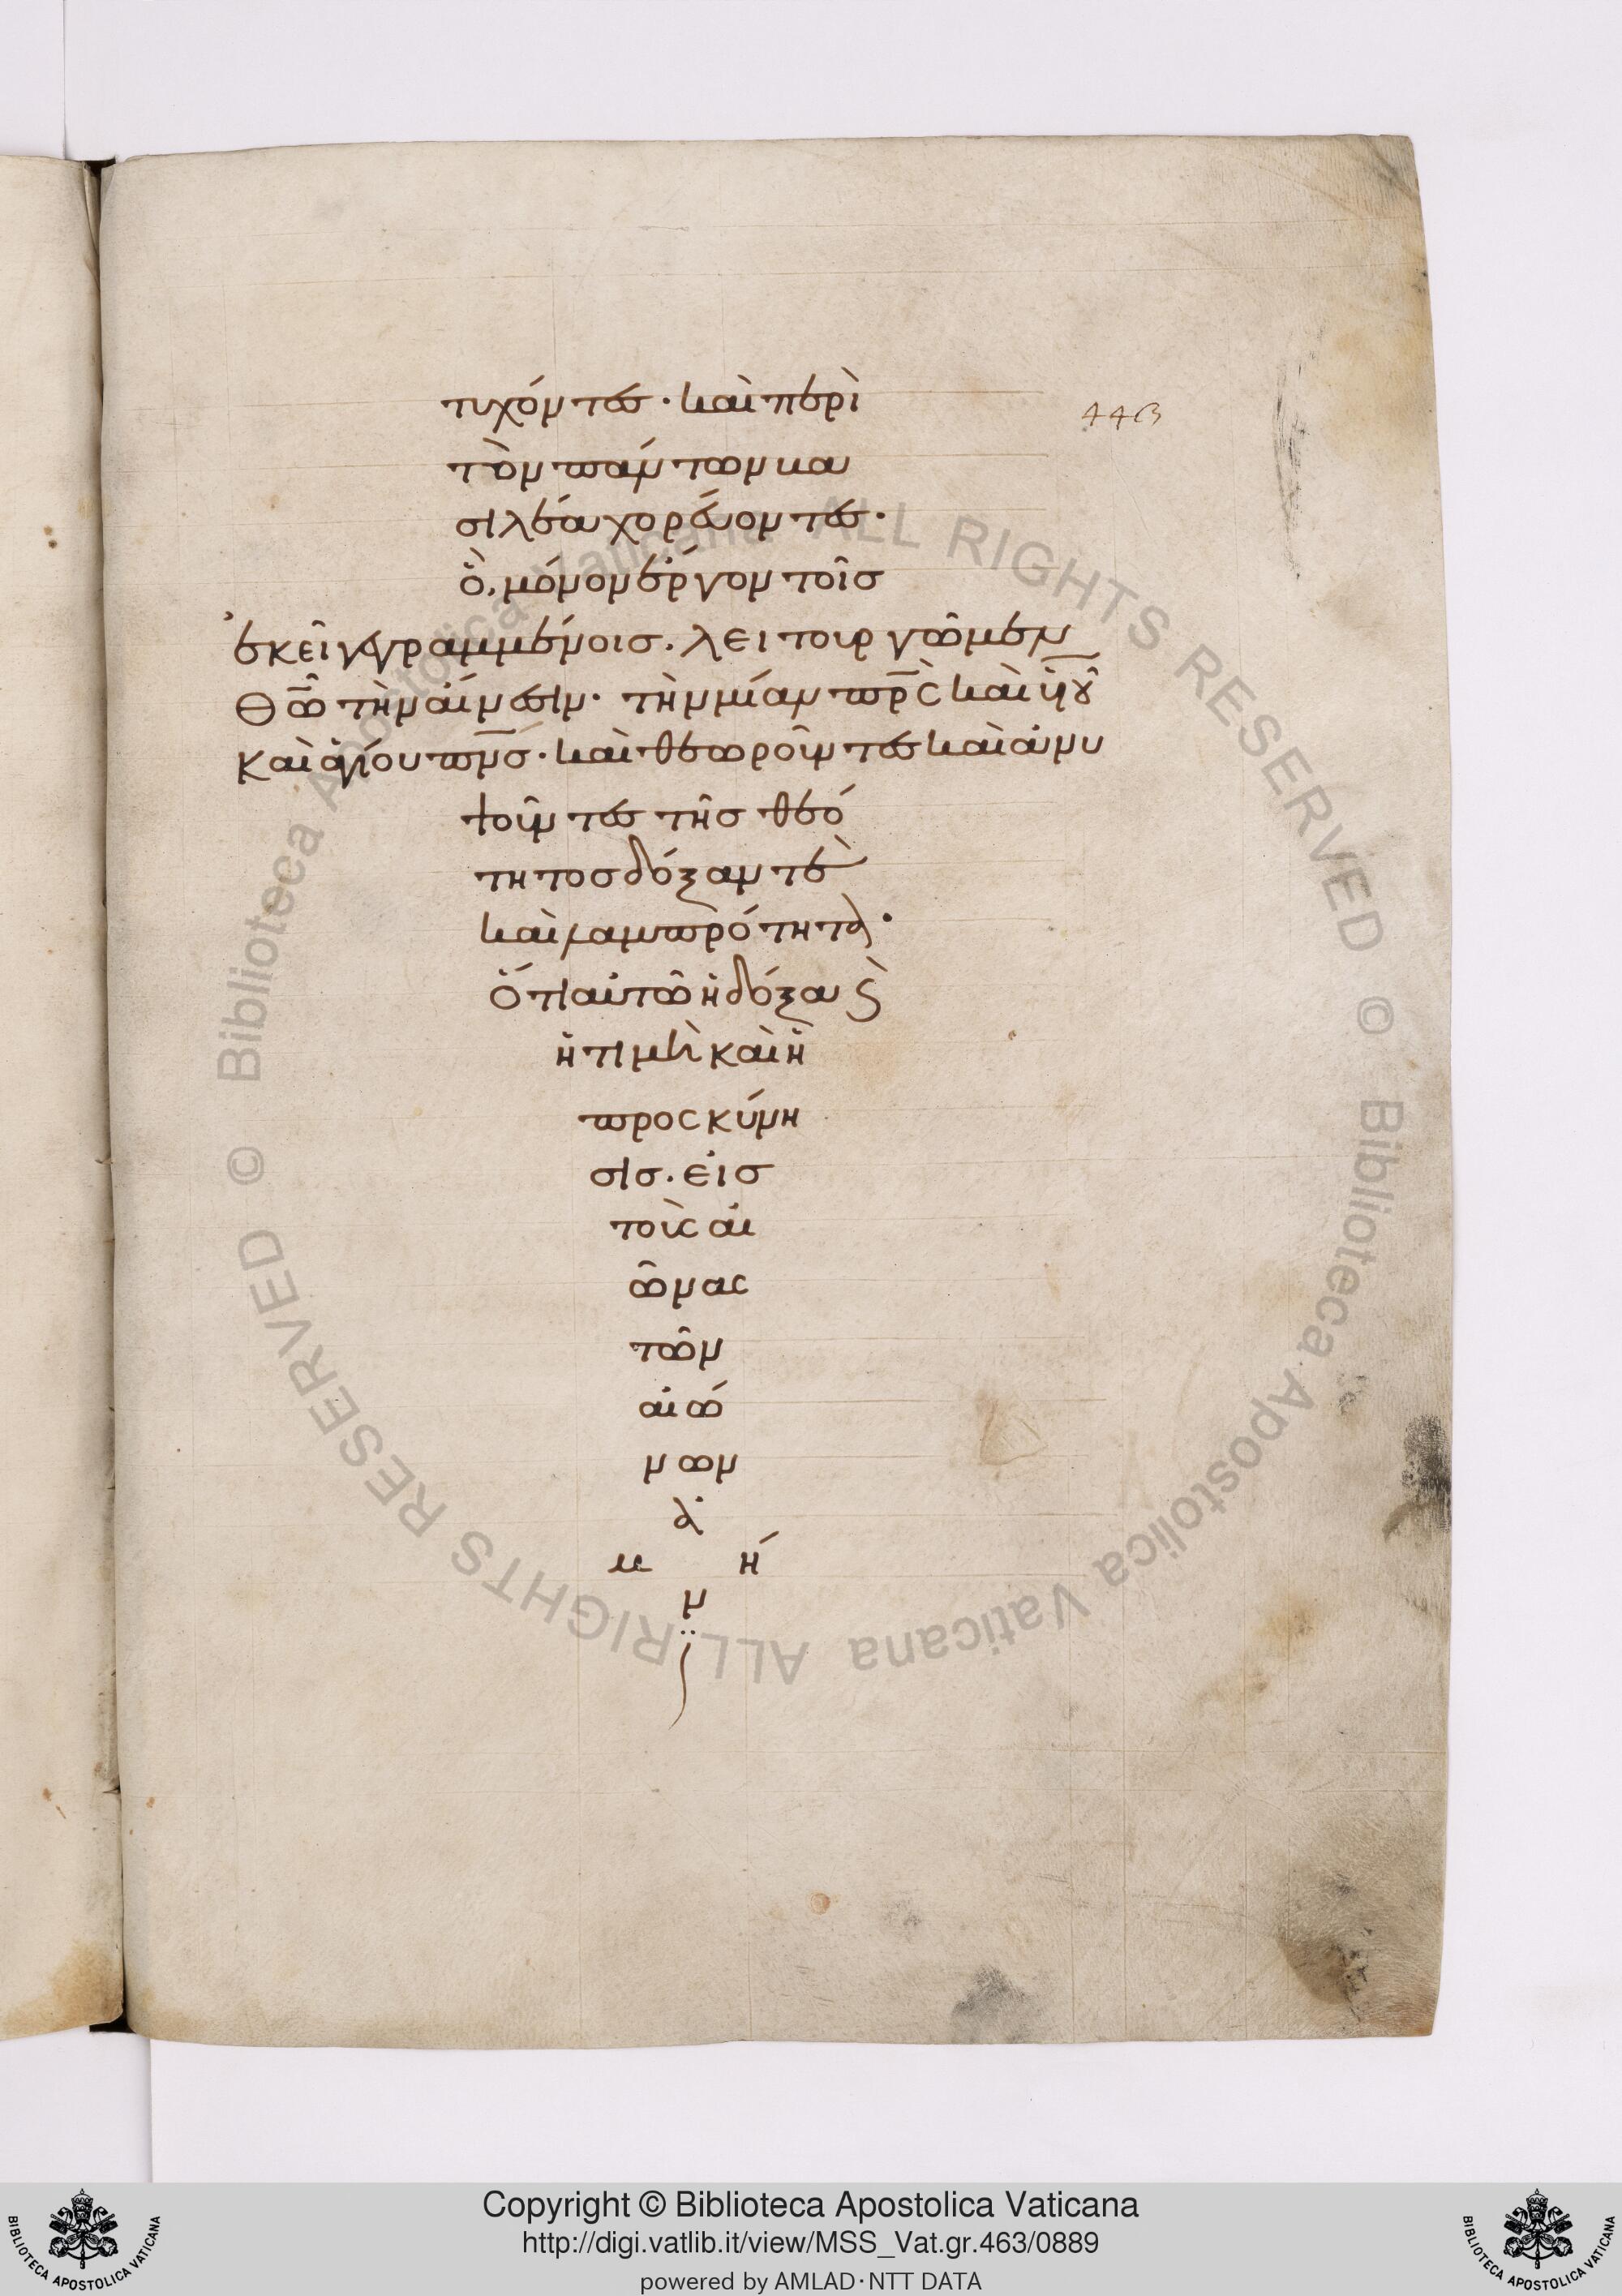 τυχόντες· καὶ περὶ
τὸν πάντων βα
σιλέα χορεύοντες·
ὃ, μόνον ἔργον τοῖσ
ἐκεῖ γεγραμμένοισ. λειτουργῶμεν
Θῶ τὴν αἴνεσιν· τὴν μίαν πρς καὶ υἱοῦ
καὶ ἁγίου πνσ· καὶ θεωροῦντες καὶ ἀνυ
μνοῦντες τῆσ θεό
τητοσ δόξαν τὲ
καὶ λαμπρότητα·
ὅτι αὐτῶ ἡ δόξα ϛ
ἡ τιμὴ καὶ ἡ
προσκύνη
σισ· εἰσ
τοὺς αἰ
ῶνας
τῶν
αἰώ
νων
ἀ
μ ή
ν
:
443
Copyright © Biblioteca Apostolica Vaticana
http://digi.vatlib.it/view/MSS_Vat.gr.463/0889
powered by AMLAD·NTT DATA
BIBLIOTECA APOSTOLICA VATICANA
BIBLIOTECA APOSTOLICA VATICANA
© Biblioteca Apostolica Vaticana ALL RIGHTS RESERVED
© Biblioteca Apostolica Vaticana ALL RIGHTS RESERVED